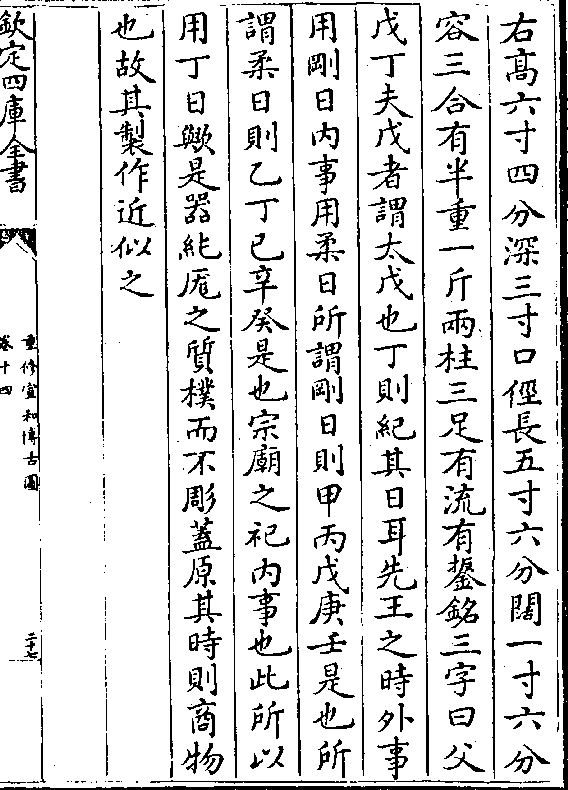 右髙六寸四分深三寸口徑長五寸六分闊一寸六分
容三合有半重一斤兩柱三足有流有鋬銘三字曰父
戊丁夫戊者謂太戊也丁則紀其日耳先王之時外事
用剛日内事用柔日所謂剛日則甲丙戊庚壬是也所
謂柔日則乙丁已辛癸是也宗廟之祀内事也此所以
用丁日歟是器純厖之質樸而不彫蓋原其時則商物
也故其製作近似之
欽定四庫全書
重修宣和博古圖
卷十四
二十七